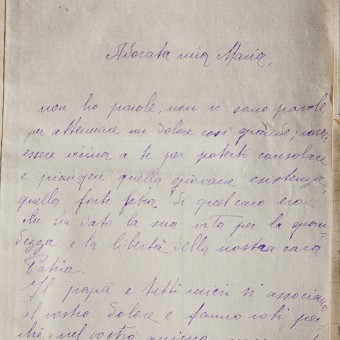 Adorata mia Maria,
non ho parole, non vi sono parole
per attenuare un dolore così grande, vorrei
essere vicina a te per poterti consolare
e piangere quella giovane esistenza,
quella forte fibra di quel caro eroe
che ha dato la sua vita per la gran-
dezza e la libertà della nostra cara
Patria.
Il papà e tutti i miei si associano
al vostro dolore e fanno voti per
chè nel vostro animo